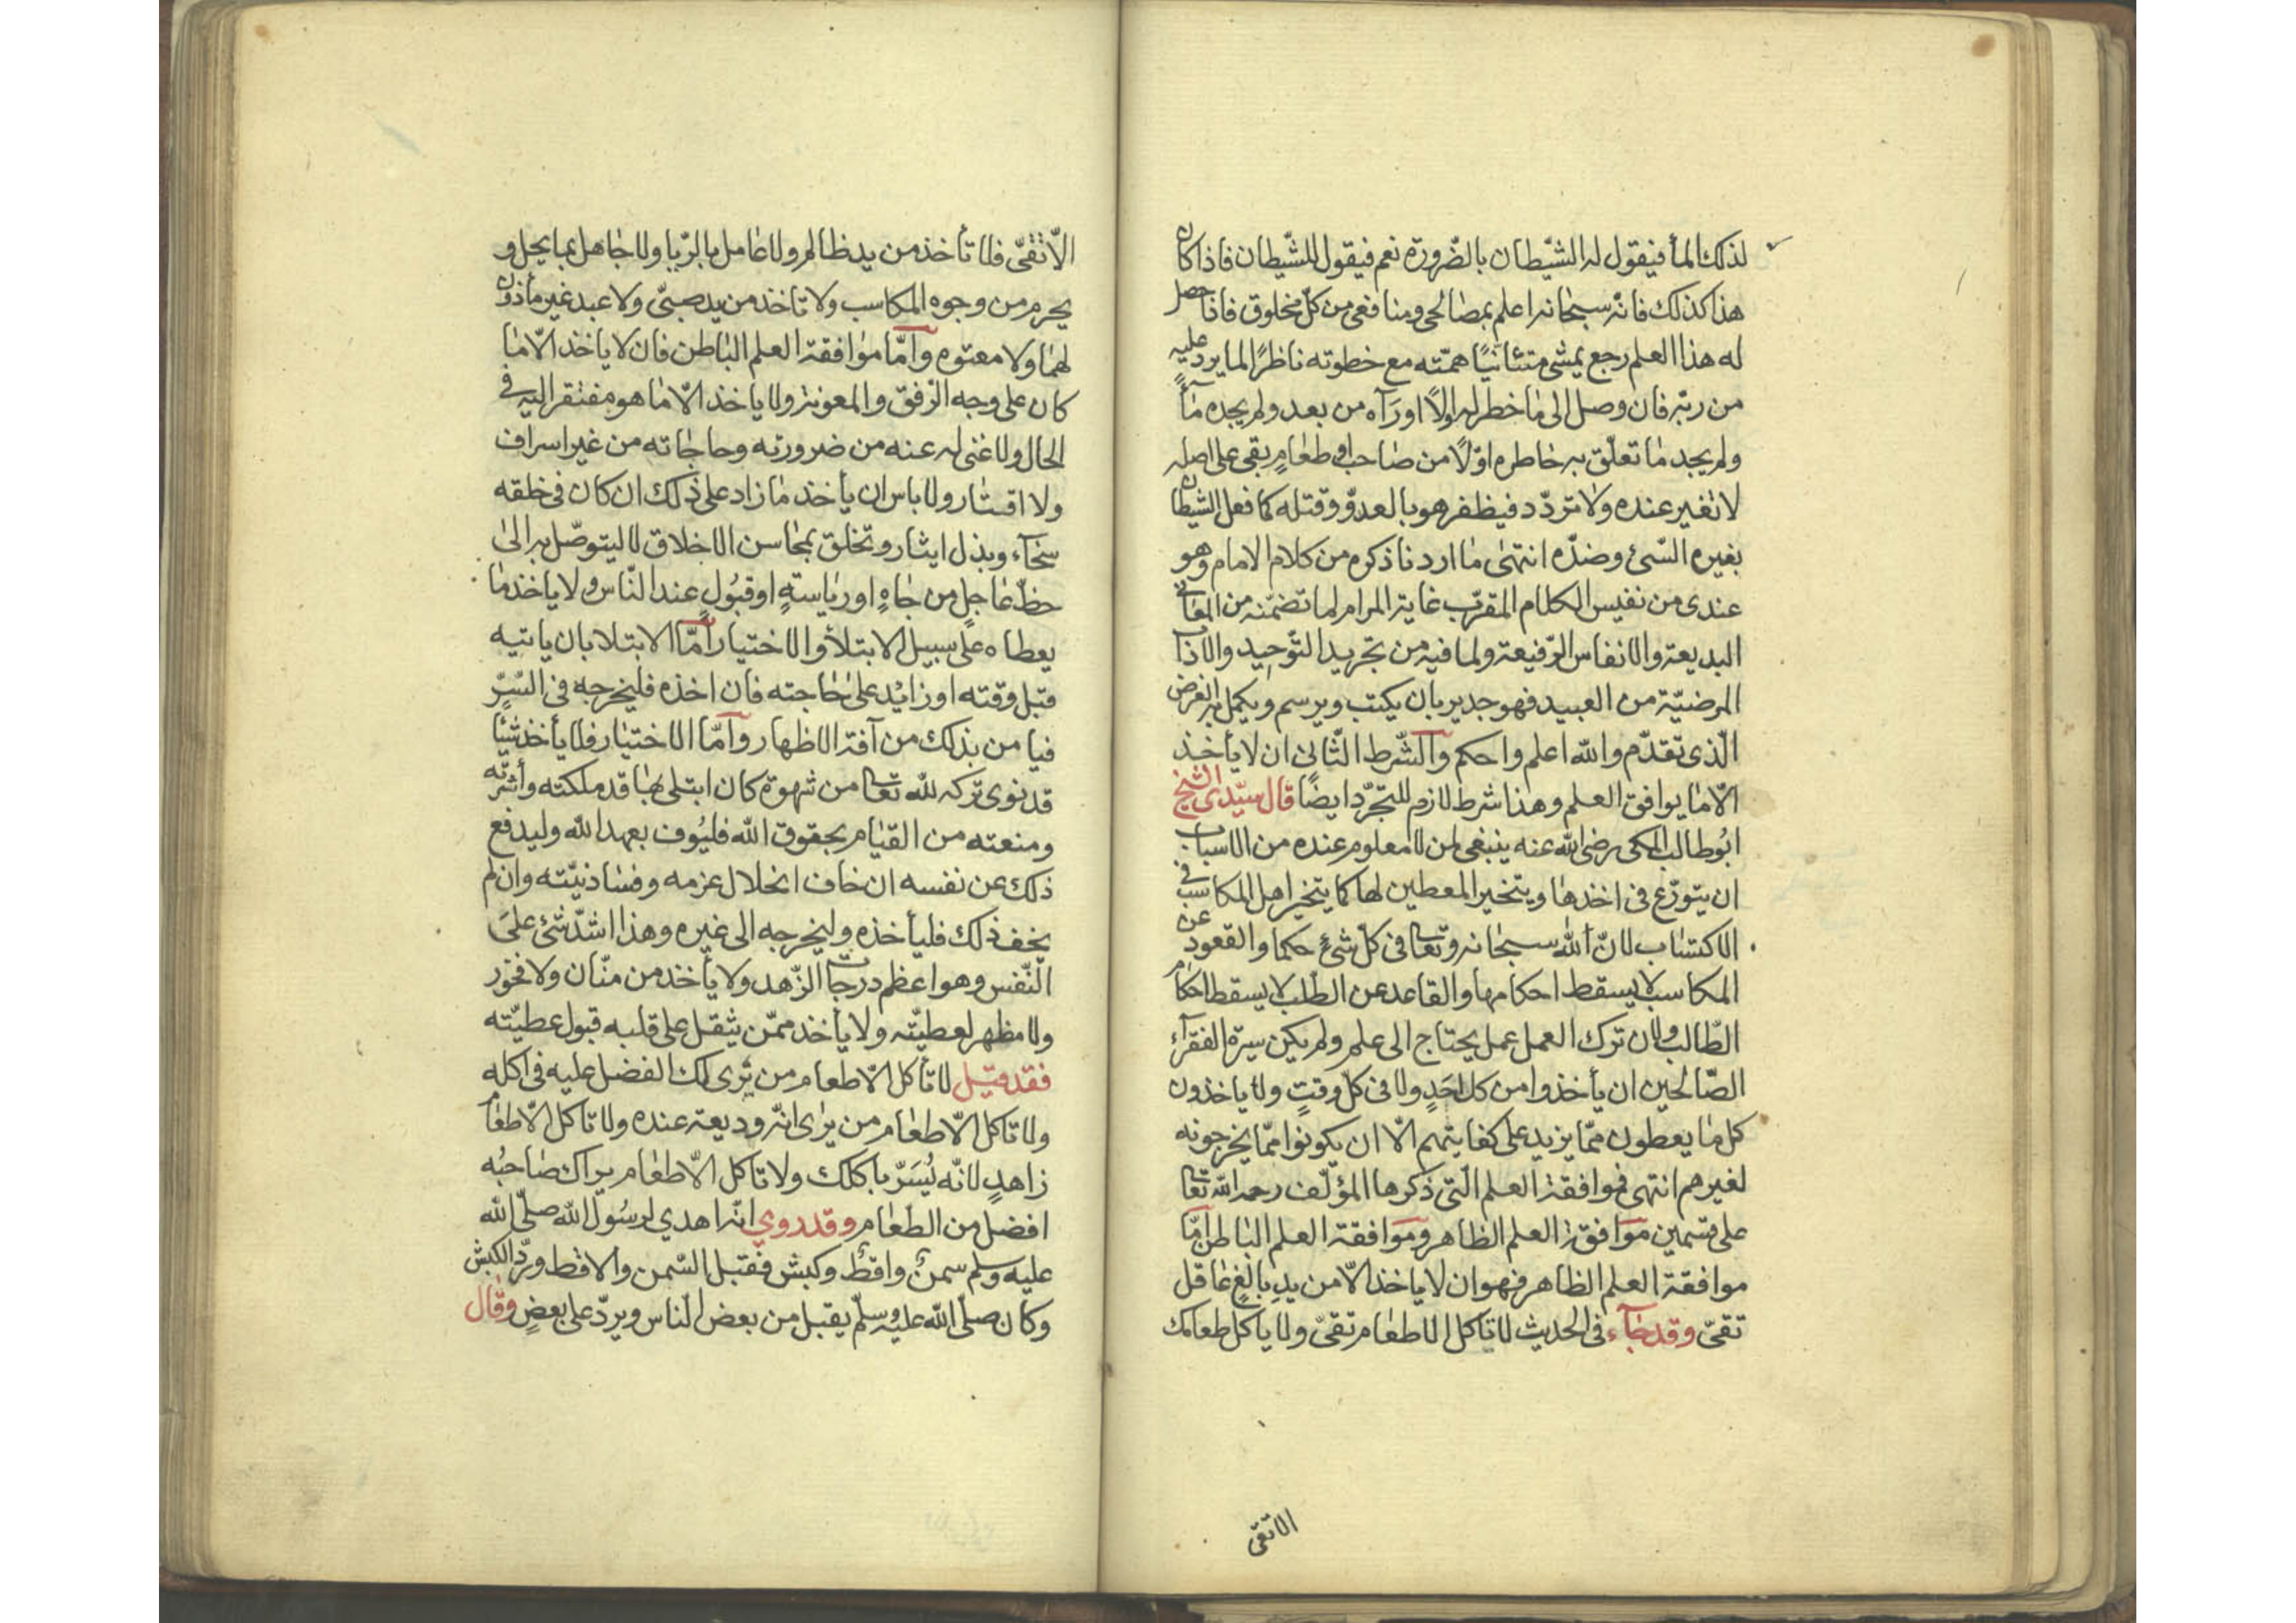 لذلك المأ فيقول له الشّيطان بالضّرورة نعم فيقول للشّيطان فاذا كان
هذا كذلك فانّه سبحانه اعلم بمصالحى ومنافعى من كلّ مخلوق فاذا حصل
له هذا العلم رجع يمشى متئانيًا همّته مع خطوته ناظرًا لما يرد عليه
من ربّه فان وصل الى ما خطر له اولًا اورآه من بعد ولم يجده مآءً
ولم يجد ما تعلّق به خاطره اوّلًا من صاحب او طعامٍ بقى على اصله
لا تغير عنده ولا تردّد فيظفر هو بالعدوّ وقتله كما فعل الشيطان
بغيره السّىئ وضدّه انتهى ما اردنا ذكره من كلام الامام وهو
عندى من نفيس الكلام المقرّب غاية المرام لما تضمّنه من المعانى
البديعة والانفاس الرّفيعة ولما فيه من تجريد التّوحيد والاداب
المرضيّة من العبيد فهو جدير بان يكتب ويرسم ويكمل به الغرض
الّذى تقدّم والله اعلم واحكم والشّرط الثّانى ان لا يأخذ
الّا ما يوافق العلم وهذا شرط لازم للتجرّد ايضًا قال سيّدى الشيخ
ابوطالب المكى رضى الله عنه ينبغى لمن لا معلوم عنده من الاسباب
ان يتورّع فى اخذها ويتخير المعطين لها كما يتخير اهل المكاسب فى
الاكتساب لانّ الله سبحانه وتعا فى كلّ شئ حكما والقعود عن
المكاسب لا يسقط احكامها والقاعد عن الطّلب لا يسقط احكام
الطّالب ولان ترك العمل عمل يحتاج الى علم ولم يكن سيرة الفقرآء
الصّالحين ان يأخذوا من كل احَدٍ ولا فى كلّ وقتٍ ولا ياخذون
كل ما يعطون ممّا يزيد على كفايتهم الّا ان يكونوا ممّا يخرجونه
لغيرهم انتهى فموافقة العلم الّتى ذكرها المؤلّف رحمه الله تعا
على قسمين موافقة العلم الظاهر وموافقة العلم الباطن امّا
موافقة العلم الظاهر فهو ان لا ياخذ الّا من يدِ بالغٍ عاقل
تقىّ وقد جآء فى الحديث لا تاكل الا طعام تقىّ ولا ياكل طعامك
الاتقى
الّا تقىّ فلا تأخذ من يد ظالم ولا عامل بالرّبا ولا جاهل بما يحل و
يحرم من وجوه المكاسب ولا تاخذ من يد صبىّ ولا عبد غير مأذون
لهما ولا معتوه وامّا موافقة العلم الباطن فان لا ياخذ الّا ما
كان على وجه الرّفق والمعونة ولا ياخذ الّا ما هو مفتقر اليه فى
الحال ولا غنى له عنه من ضرورته وحاجاته من غير اسراف
ولا اقتار ولا باس ان يأخذ ما زاد على ذلك ان كان فى خلقه
سخآء وبذل ايثار وتخلق بمحاسن الاخلاق لا ليتوصّل به الى
حظّ عاجل من جاهٍ او رياسةٍ او قبُولٍ عند النّاس ولا ياخذ ما
يعطاه على سبيل الابتلأ والاختيار امّا الابتلا بان ياتيه
قبل وقته او زائد على حاجته فان اخذه فليخرجه فى السّرّ
فيامن بذلك من آفة الاظهار وامّا الاختيار فلا يأخذ شيًا
قد نوى تركه لله تعا من شهوة كان ابتلى بها قد ملكته وأشرّته
ومنعته من القيام بحقوق الله فليُوف بعهد الله وليدفع
ذلك عن نفسه ان خاف انحلال عزمه وفساد نيّته وان لم
يخف ذلك فليأخذه وليخرجه الى غيره وهذا اشدّ شئ علىَ
النّفس وهو اعظم درجات الزّهد ولا يأخذ من منّان ولا فخور
ولا مظهر لعطيّته ولا يأخذ ممّن يثقل على قلبه قبول عطيّته
فقد قيل لا تأكل الّا طعام من يَرى لك الفضل عليه فى اكله
ولا تاكل الّا طعام من يرى انّه وديعة عنده ولا تاكل الّا طعام
زاهدٍ لانّه يُسَرّ باكلك ولا تاكل الّا طعام يراك صاحبُه
افضل من الطعام وقد روي انّه اهدي لرسُول الله صلّى الله
عليه وسلم سمنٌ واقطٌ وكبش فقبل السّمن والاقط وردّ الكبش
وكان صلّى الله عليه وسلّم يقبل من بعض النّاس ويردّ على بعضٍ وقال